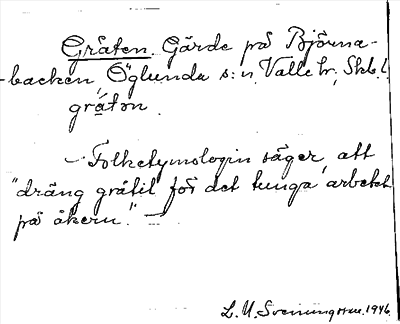 Gråten. Gärde på Björna-
backen, Öglunda s:n, Valle hr, Skbl.
gråton
– Folketymologin säger, att
"dräng gråtit för det tunga arbetet
på åkern." –
L. M. Svenungsson. 1946